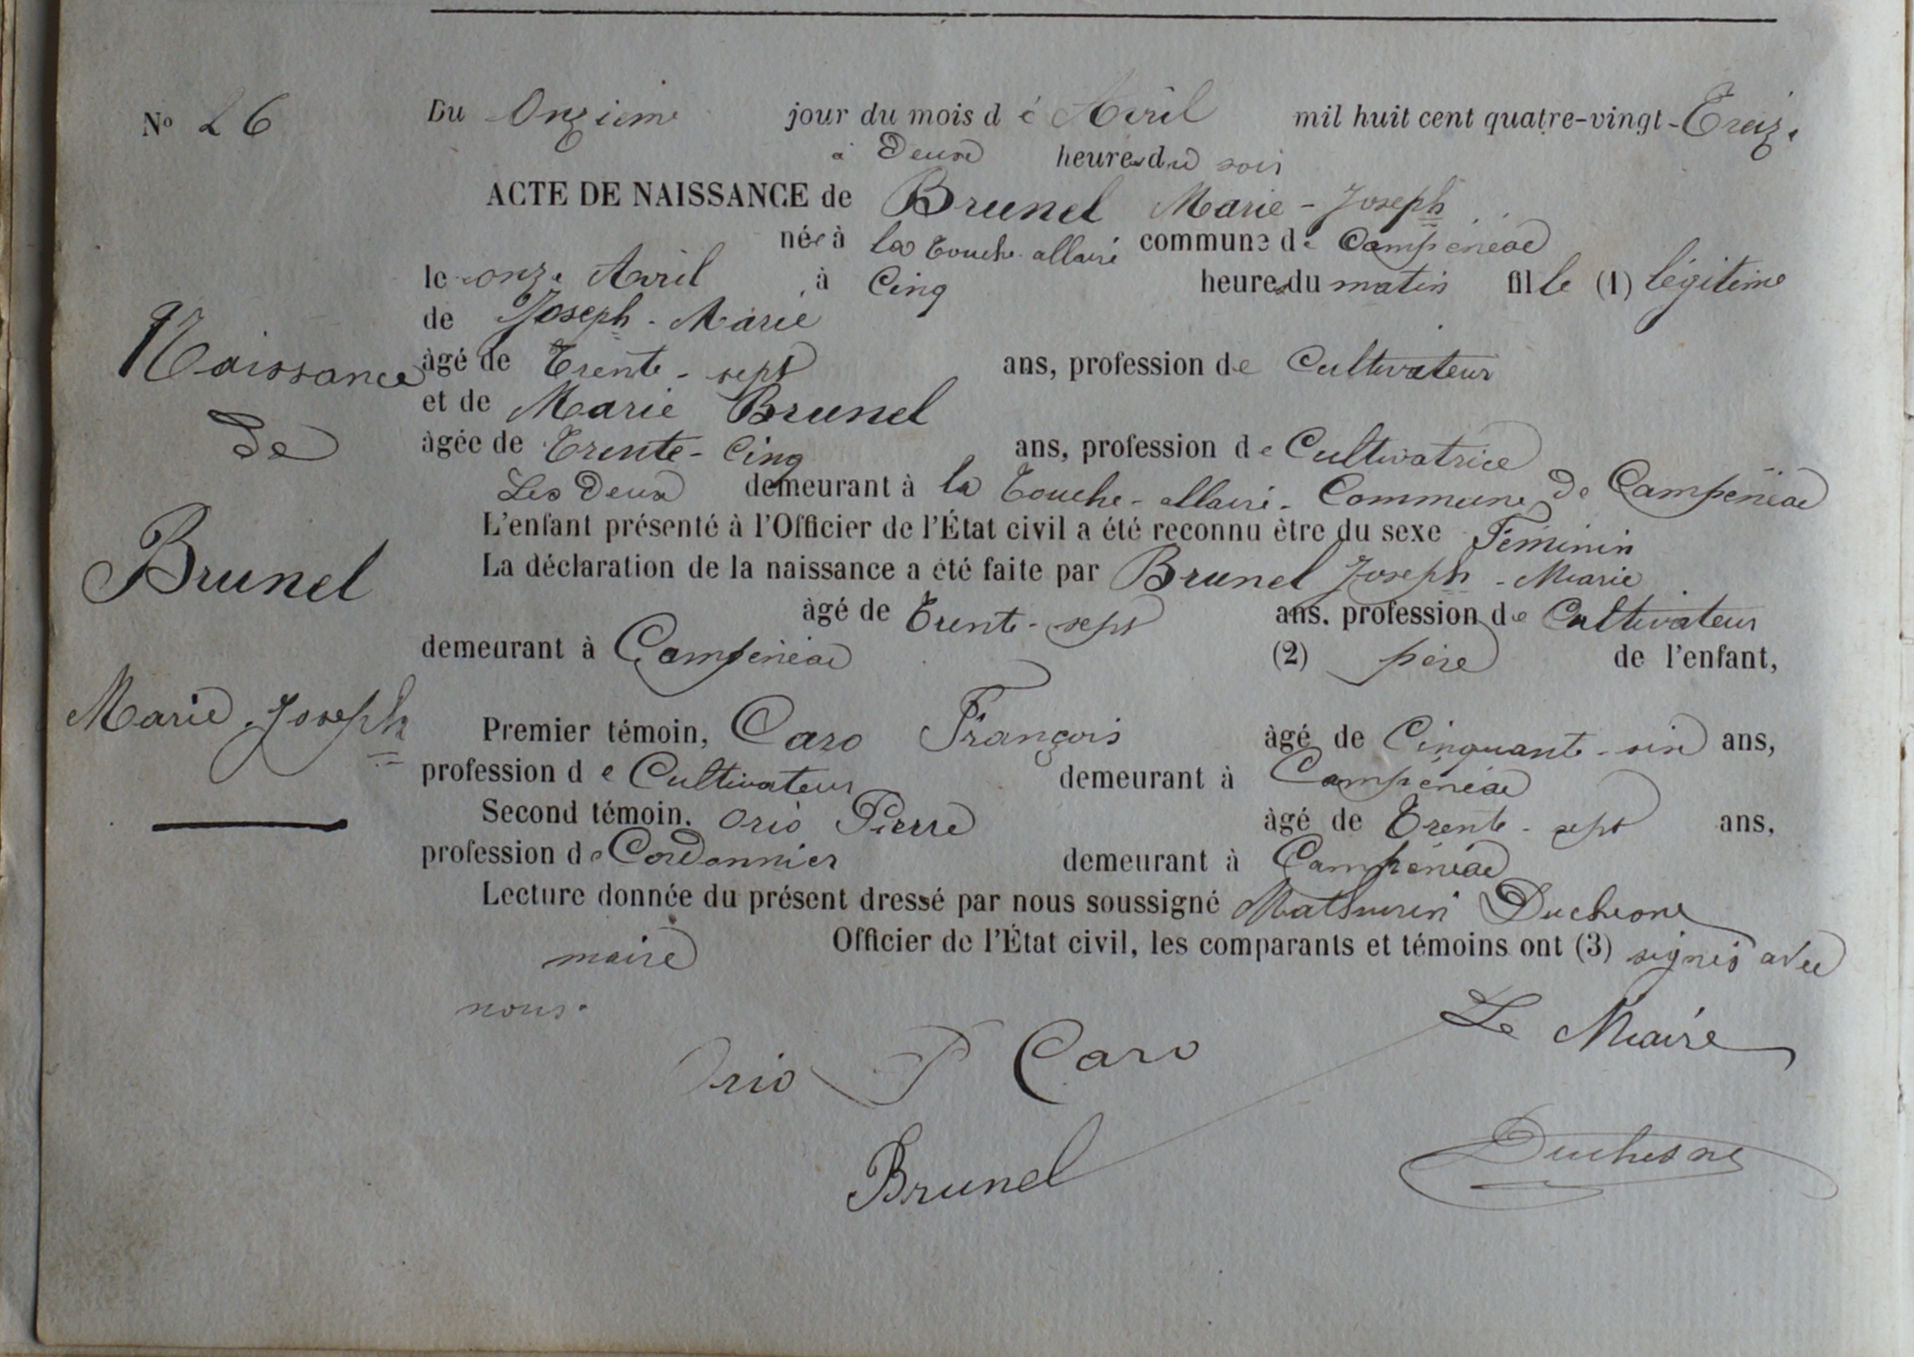 No 26
Du Onzième jour du mois de Avril mil huit cent quatre-vingt-Treize
à Deux heures du soir
ACTE DE NAISSANCE de Brunel Marie-Joseph
née à la Touche-allaire commune de Campénéac
le onze Avril à Cinq heures du matin fille (1) légitime
de Joseph-Marie
âgé de Trente-sept ans, profession de Cultivateur
et de Marie Brunel
âgée de Trente-Cinq ans, profession de Cultivatrice
Les Deux demeurant à la Touche-allaire-Commune de Campénéac
L'enfant présenté à l'Officier de l'État civil a été reconnu être du sexe Féminin
La déclaration de la naissance a été faite par Brunel Joseph-Marie
âgé de Trente-sept ans, profession de Cultivateur
demeurant à Campénéac (2) père de l'enfant,
Premier témoin, Caro François âgé de Cinquante-six ans,
profession de Cultivateur demeurant à Campénéac
Second témoin, Orio Pierre âgé de Trente-sept ans,
profession de Cordonnier demeurant à Campénéac
Lecture donnée du présent dressé par nous soussigné Mathurin Duchesne
maire Officier de l'État civil, les comparants et témoins ont (3) signés avec
nous.
Naissance
de
Brunel
Marie-Joseph
Le Maire
Orio P Caro
Brunel
Duchesne